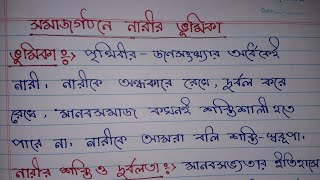 সমাজগঠনে নারীর ভূমিকা
ভূমিকা :- পৃথিবীর - জনসংখ্যার অর্ধেকই
নারী। নারীকে অন্ধকারে রেখে, দুর্বল করে
রেখে, মানবসমাজ কখনই শক্তিশালী হতে
পারে না। নারীকে আমরা বলি শক্তি-স্বরূপা।
নারীর শক্তি ও দুর্বলতা :- মানবসভ্যতার ইতিহাসে